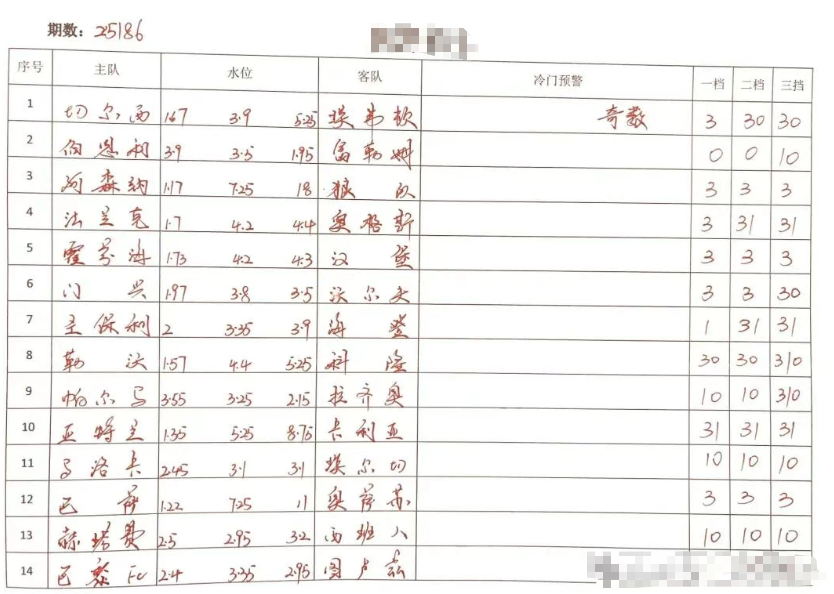 期数: 25186
序号 主队 水位 客队 冷门预警 一档 二档 三挡
1 切尔西 1.67 3.9 5.25 埃弗顿 奇数 3 30 30
2 伯恩利 3.9 3.5 1.95 富勒姆 0 0 10
3 阿森纳 1.17 7.25 18 狼队 3 3 3
4 法兰克 1.7 4.2 4.4 奥格斯 3 31 31
5 霍芬海 1.73 4.2 4.3 汉堡 3 3 3
6 门兴 1.97 3.8 3.5 沃尔夫 3 3 30
7 圣保利 2 3.35 3.9 海登 1 31 31
8 勒沃 1.57 4.4 5.25 科隆 30 30 310
9 帕尔马 3.55 3.25 2.15 拉齐奥 10 10 310
10 亚特兰 1.35 5.25 8.75 卡利亚 31 31 31
11 马洛卡 2.45 3.1 3.1 埃尔切 10 10 10
12 巴萨 1.22 7.25 11 奥萨苏 3 3 3
13 赫塔费 2.5 2.95 3.2 西班人 10 10 10
14 巴黎FC 2.4 3.35 2.95 图卢兹